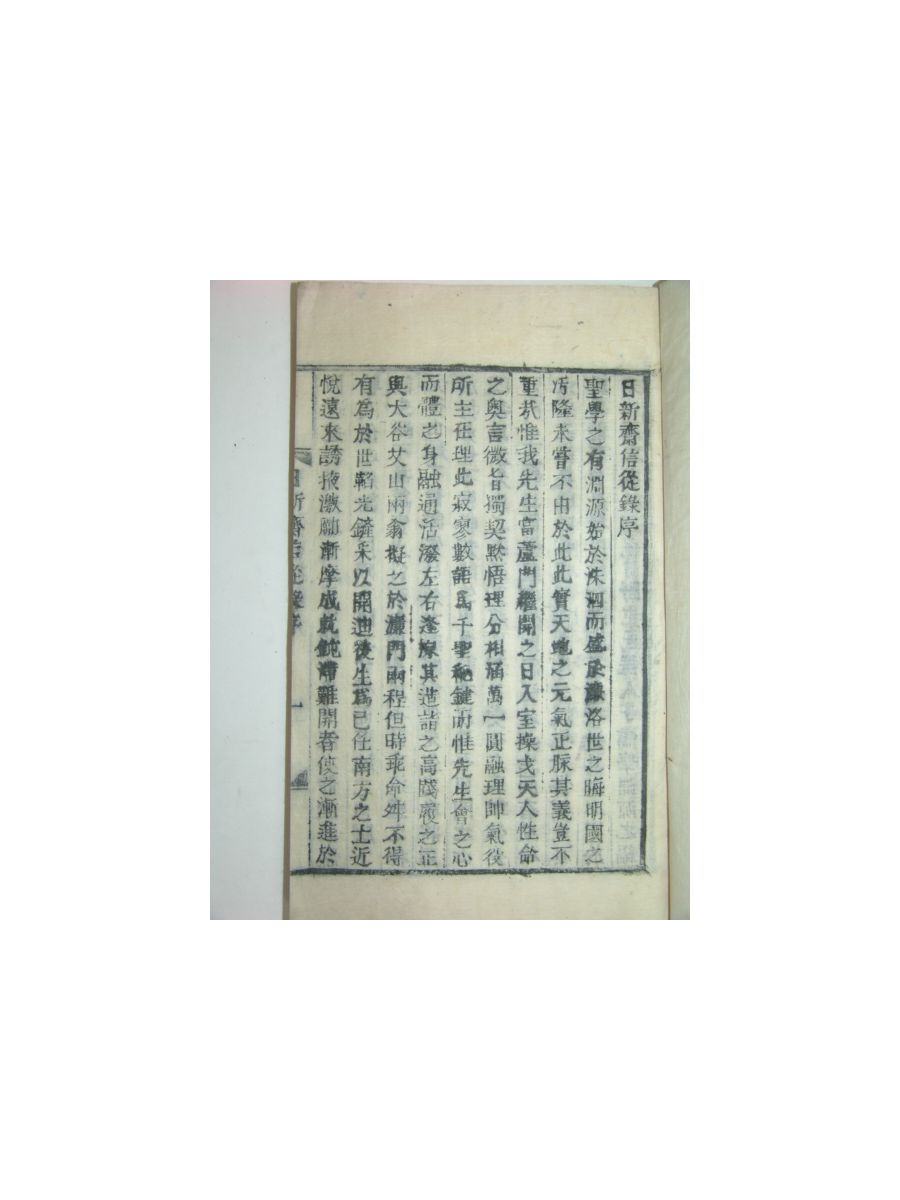 日新齋信從錄序
聖學之有淵源始於洙泗而盛於濂洛世之晦明國之
汚隆未嘗不由於此此實天地之元氣正脉其義豈不
重哉惟我先生當蘆門繼開之日入室操戈天人性命
之奧言微旨獨契黙悟理分相涵萬一圓融理帥氣役
所主在理此寂寥數語爲千聖秘鍵而惟先生會之心
而體之身融通活潑左右逢原其造詣之高踐履之正
與大谷艾山兩翁擬之於濂門兩程但時乖命舛不得
有爲於世韜光鏟采以開迪後生爲己任南方之士近
悅遠來誘掖激勵漸摩成就鈍滯難開者使之漸進於
日新齋信從錄序 一